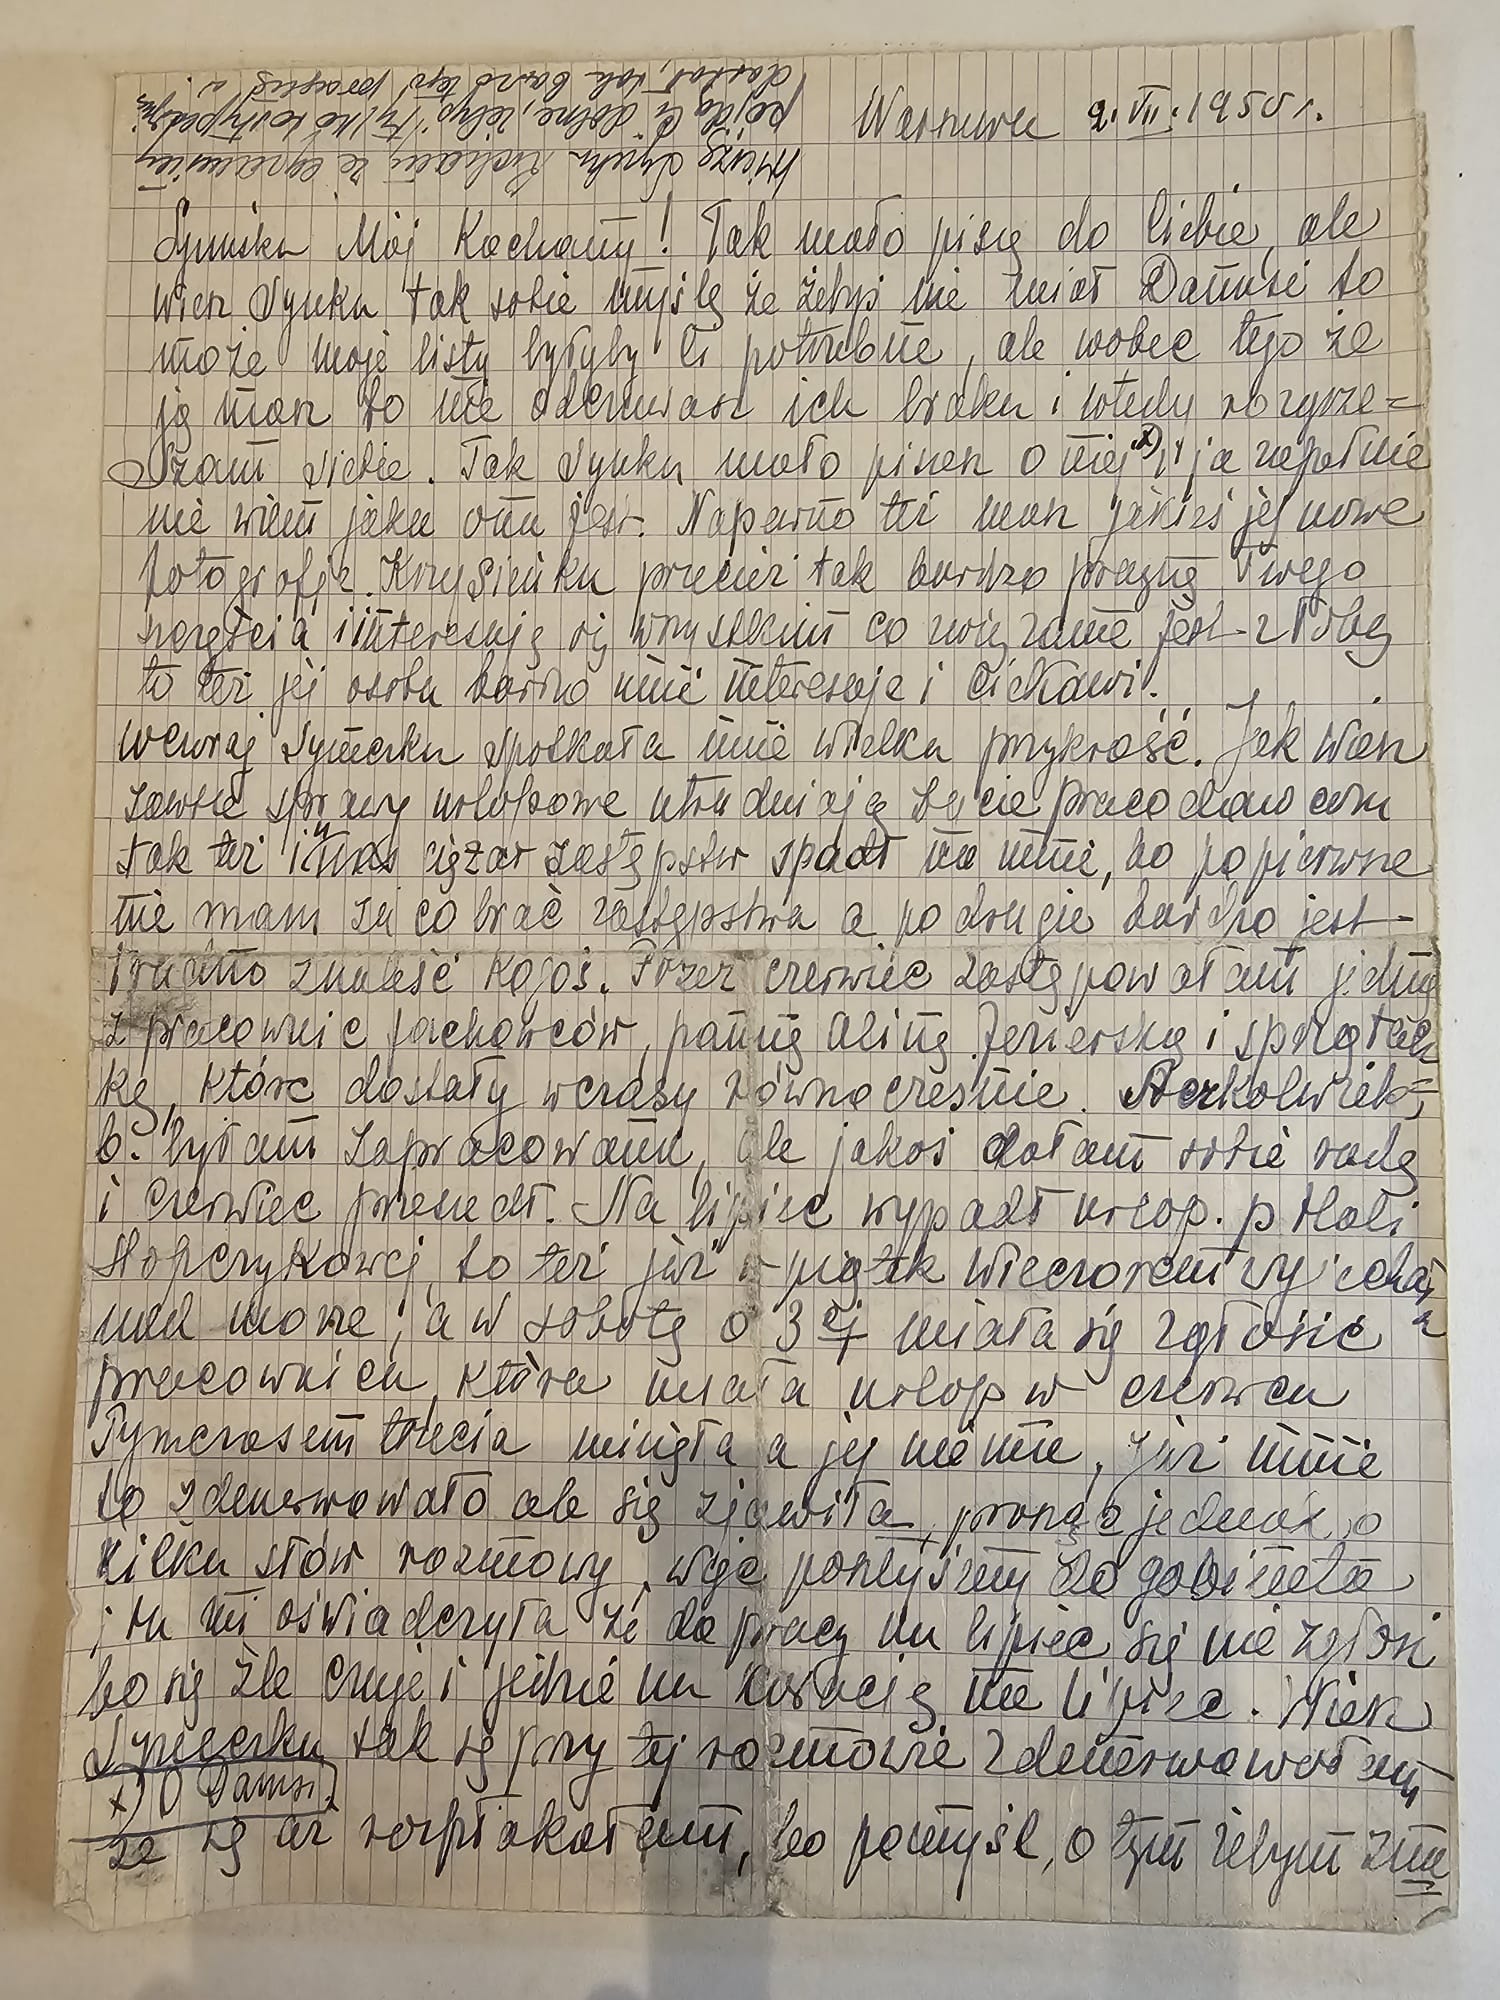 Warszawa 2.VII.1950 r.
Wierzę Synku Kochany że egzaminy
pójdą Ci dobrze, żebyś tylko
dostał, tak bardzo tego pragnę
Syneńku Mój Kochany! Tak mało piszę do Ciebie, ale
wiesz Synku tak sobie myślę że żebyś nie miał Danusi to
może moje listy byłyby Ci potrzebne, ale wobec tego że
ją masz to nie odczuwasz ich braku i wtedy rozgrze=
szam siebie. Tak Synku mało piszesz o niej x) i ja zupełnie
nie wiem jaka ona jest. Napewno też masz jakieś jej nowe
fotografje. Krzysieńku przecież tak bardzo pragnę Twego
szczęścia i interesuję się wszystkim co związane jest z Tobą
to też jej osoba bardzo mnie interesuje i ciekawi.
Wczoraj Syneczku spotkała mnie wielka przykrość. Jak wiesz
zawsze sprawy urlopowe utrudniają życie pracodawcom
tak też i u nas ciężar zastępstw spadł na mnie, bo popierwsze
nie mam za co brać zastępstwa a podrugie bardzo jest
trudno znaleść kogoś. Przez czerwiec zastępowałam jedną
z pracownic fachowców, pannę Alinę Jezierską i sprzątacz
kę, które dostały wczasy równocześnie. Aczkolwiek=
b. byłam zapracowana, ale jakoś dałam sobie radę
i czerwiec przeszedł. Na lipiec wypadł urlop. p Hali
Stopczykowej, to też już w piątek wieczorem wyjechała
nad morze, a w sobotę o 3 ej miała się zgłosić
pracownica, która miała urlop w czerwcu
Tymczasem trzecia minęła a jej niema, już mnie
to zdenerwowało ale się zjawiła, prosząc jednak o
kilka słów rozmowy, więc poszłyśmy do gabinetu
i tu mi oświadczyła że do pracy na lipiec się nie zgłosi
bo się źle czuje i jedzie na kurację na lipiec. Wiesz
Syneczku tak się przy tej rozmowie zdenerwowałam
x) O Danusi.
że się aż rozpłakałam, bo pomyśl, o tym żebym zna